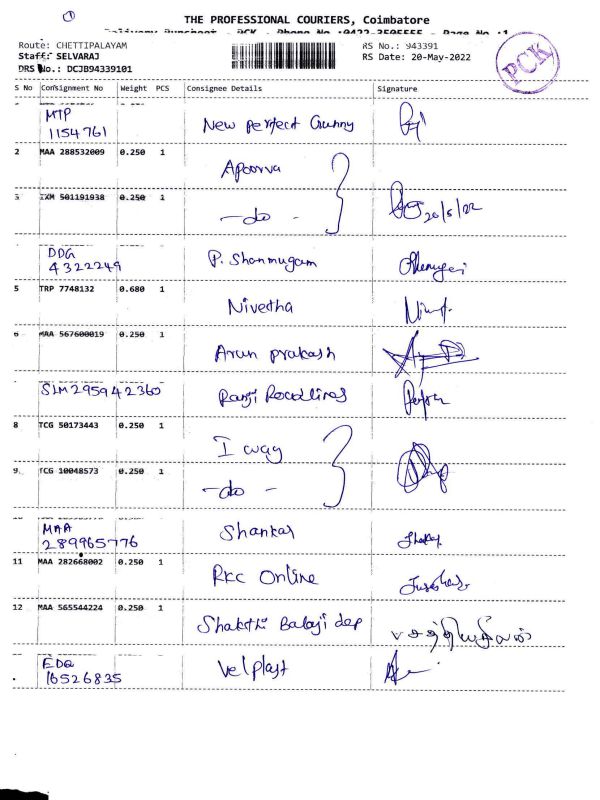 ①
THE PROFESSIONAL COURIERS, Coimbatore
Delivery Runsheet - PCK - Phone No :0422-2505555 - Page No :1
Route: CHETTIPALAYAM
RS No.: 943391
Staff: SELVARAJ
RS Date: 20-May-2022
DRS No.: DCJB94339101
PCK
S No Consignment No Weight PCS Consignee Details Signature
MTP
1154761 New perfect Gunny
2 MAA 288532009 0.250 1 Apoorva
3 IXM 501191938 0.250 1 -do- 20/5/22
DDG
4322249 P. Shanmugam
5 TRP 7748132 0.680 1 Nivetha
6 MAA 567600019 0.250 1 Arun prakash
SLM295942360 Ranji Roadlines
8 TCG 50173443 0.250 1 I way
9. TCG 10048573 0.250 1 -do-
10 MAA
289965776 Shankar
11 MAA 282668002 0.250 1 RKC Online
12 MAA 565544224 0.250 1 Shakthi Balaji dep
EDQ
16526835 Velplast